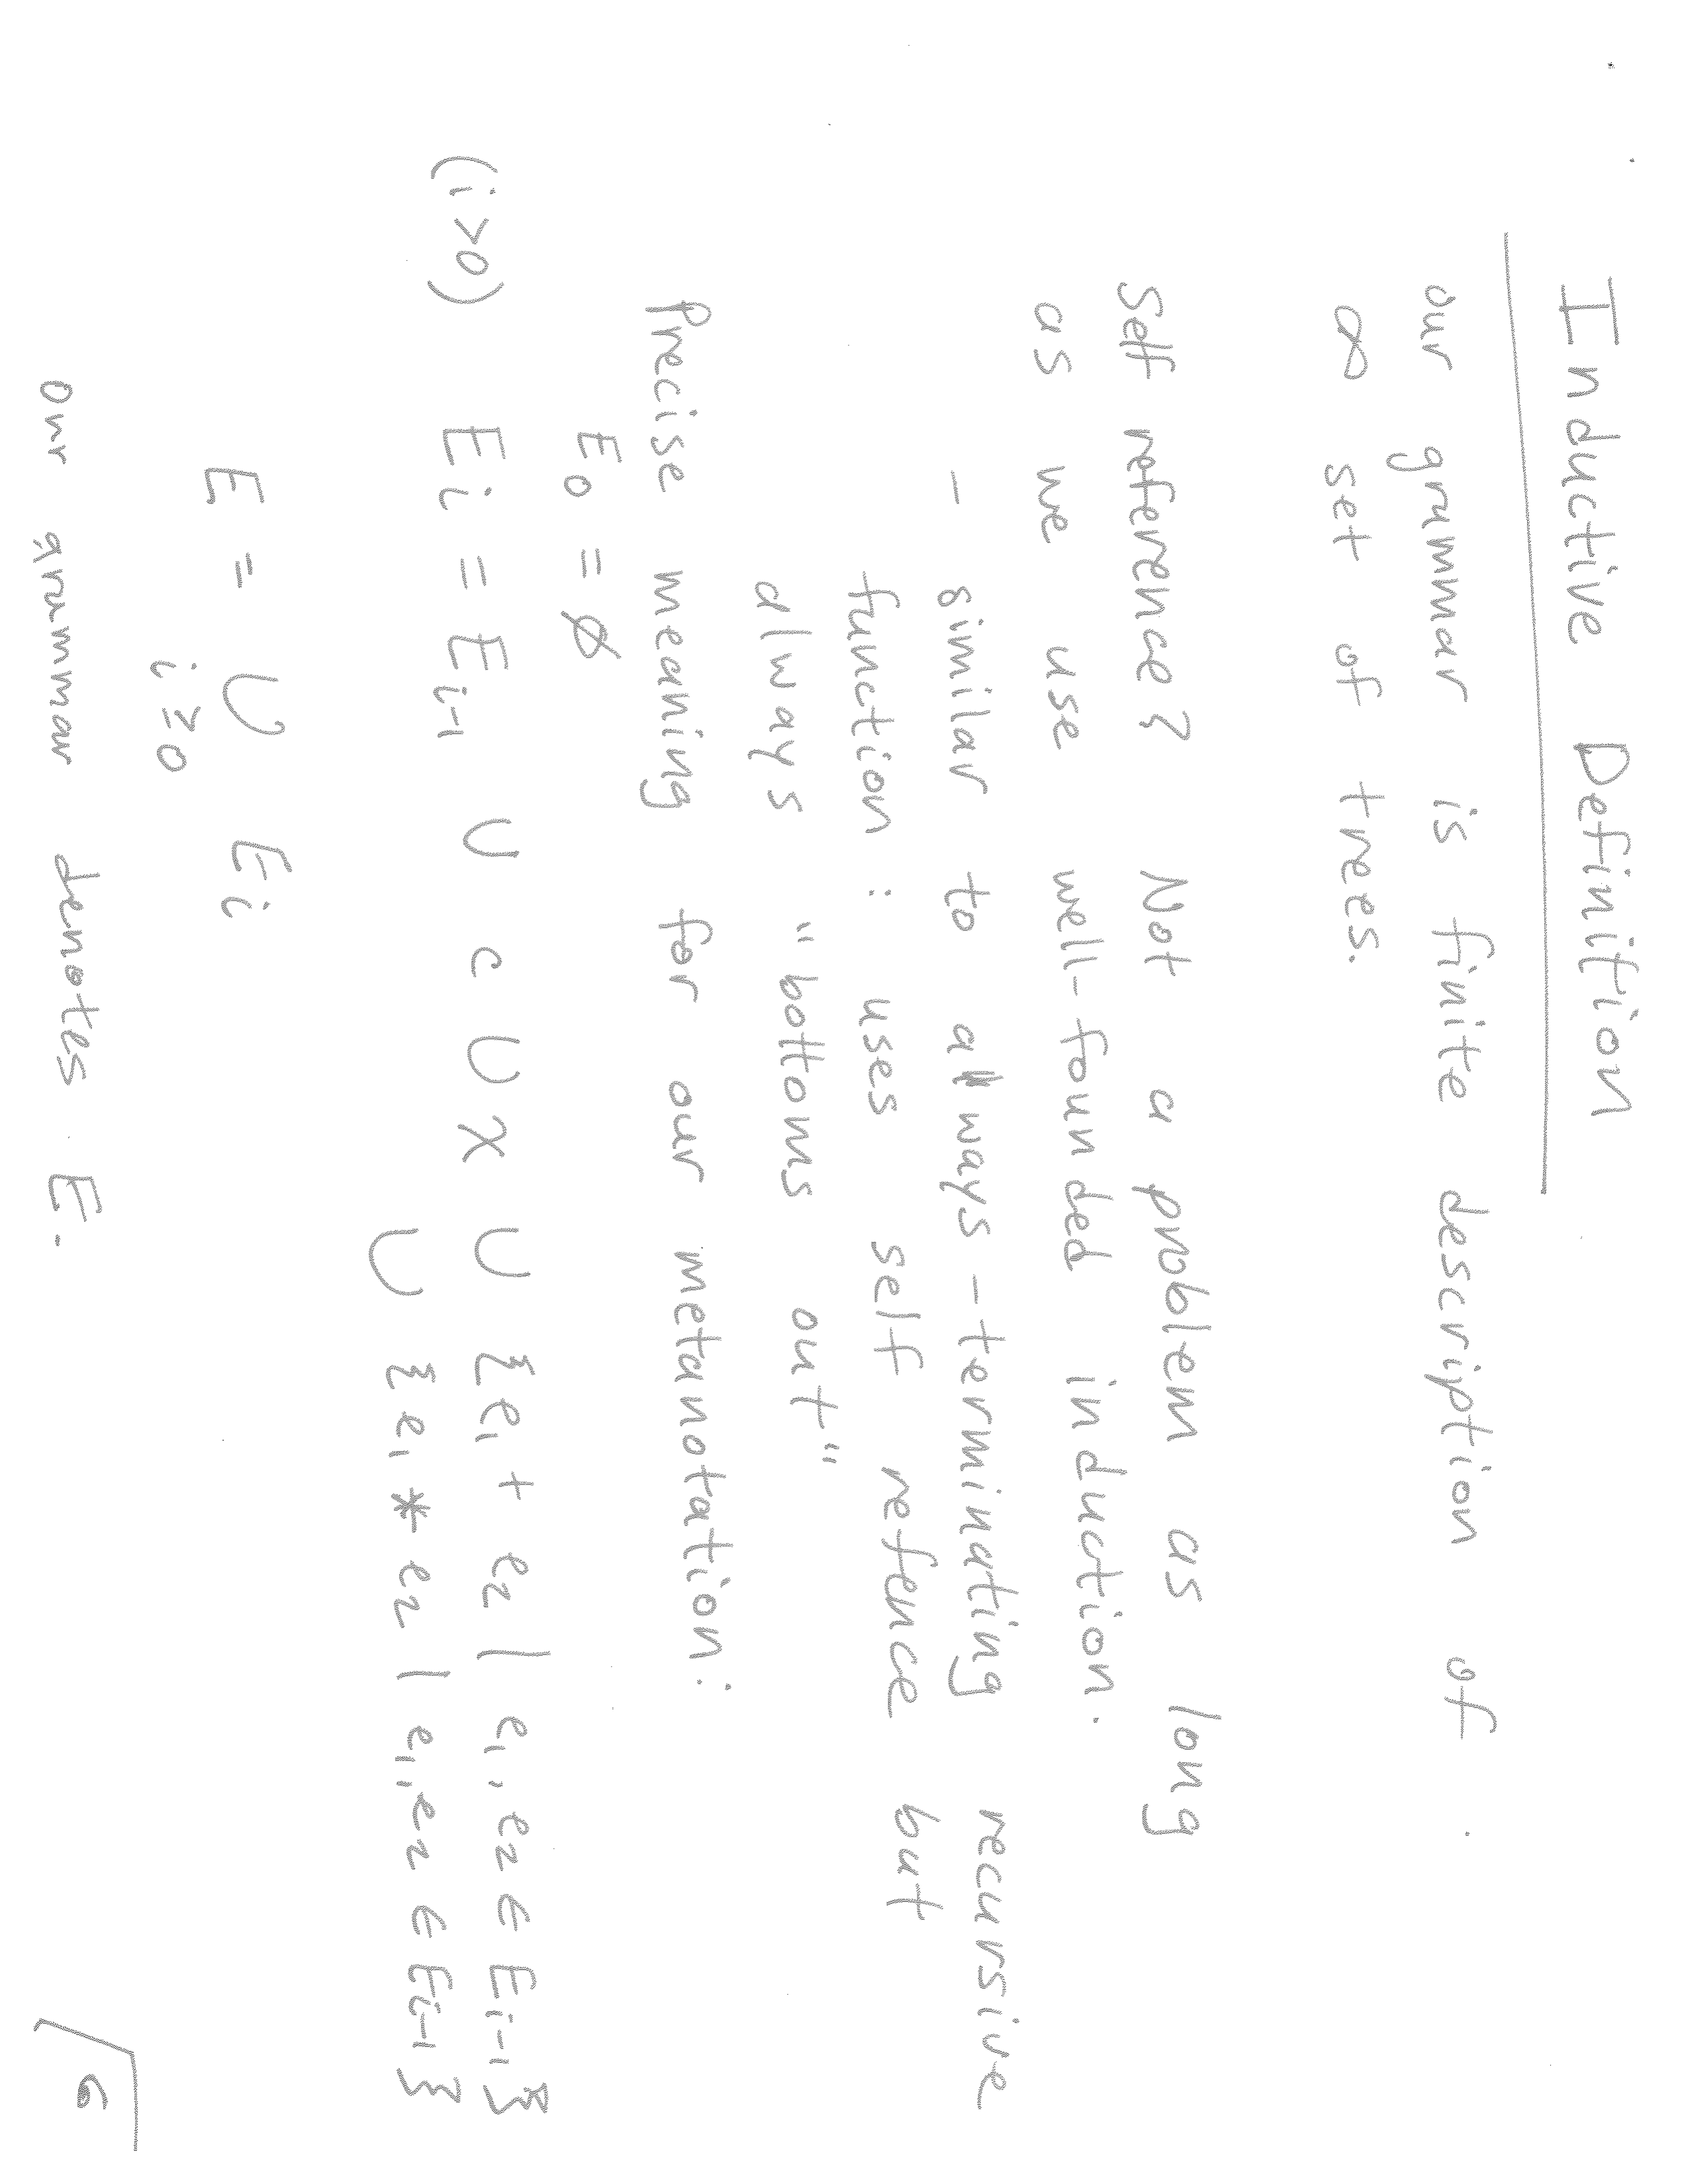 Inductive Definition
our grammar is finite description of
∞ set of trees.
Self reference? Not a problem as long
as we use well-founded induction.
- similar to always-terminating recursive
function: uses self refence but
always "bottoms out"
Precise meaning for our metanotation:
E₀ = ∅
(i>0) Eᵢ = Eᵢ₋₁ ∪ c ∪ x ∪ {e₁ + e₂ | e₁, e₂ ∈ Eᵢ₋₁}
∪ {e₁ * e₂ | e₁, e₂ ∈ Eᵢ₋₁}
E = ∪ Eᵢ
i ≥ 0
our grammar denotes E.
6